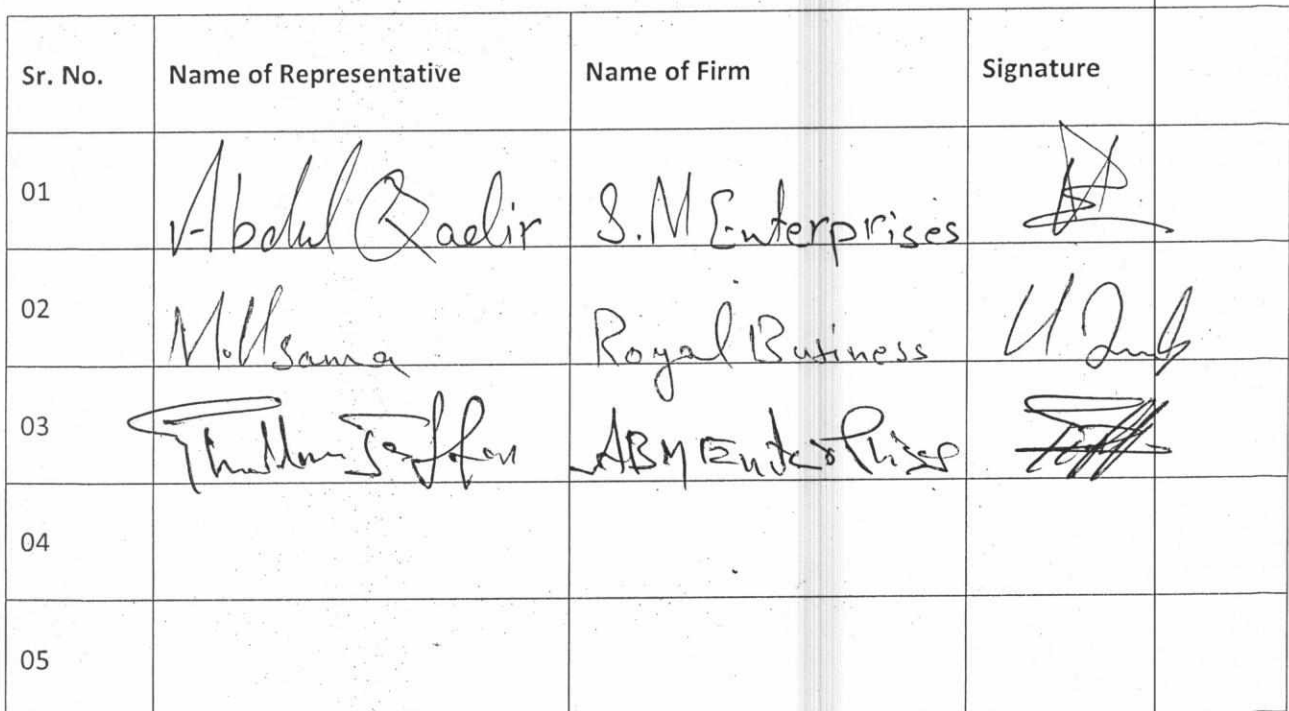 Sr. No. Name of Representative Name of Firm Signature
01 Abdul Qadir S.M Enterprises
02 M.Usama Royal Business
03 ABM Enterprise
04
05